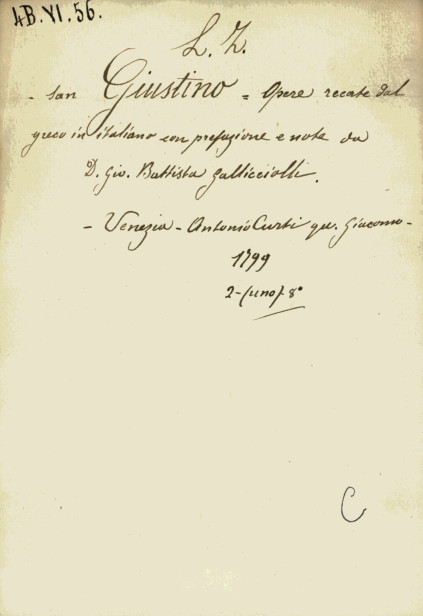 4B.VI.56.
L. Z.
- San Giustino = Opere recate dal
greco in italiano con prefazione e note da
D. Gio. Battista Gallicciolli.
- Venezia - Antonio Curti qu. Giacomo -
1799
2 - (uno) 8°
C